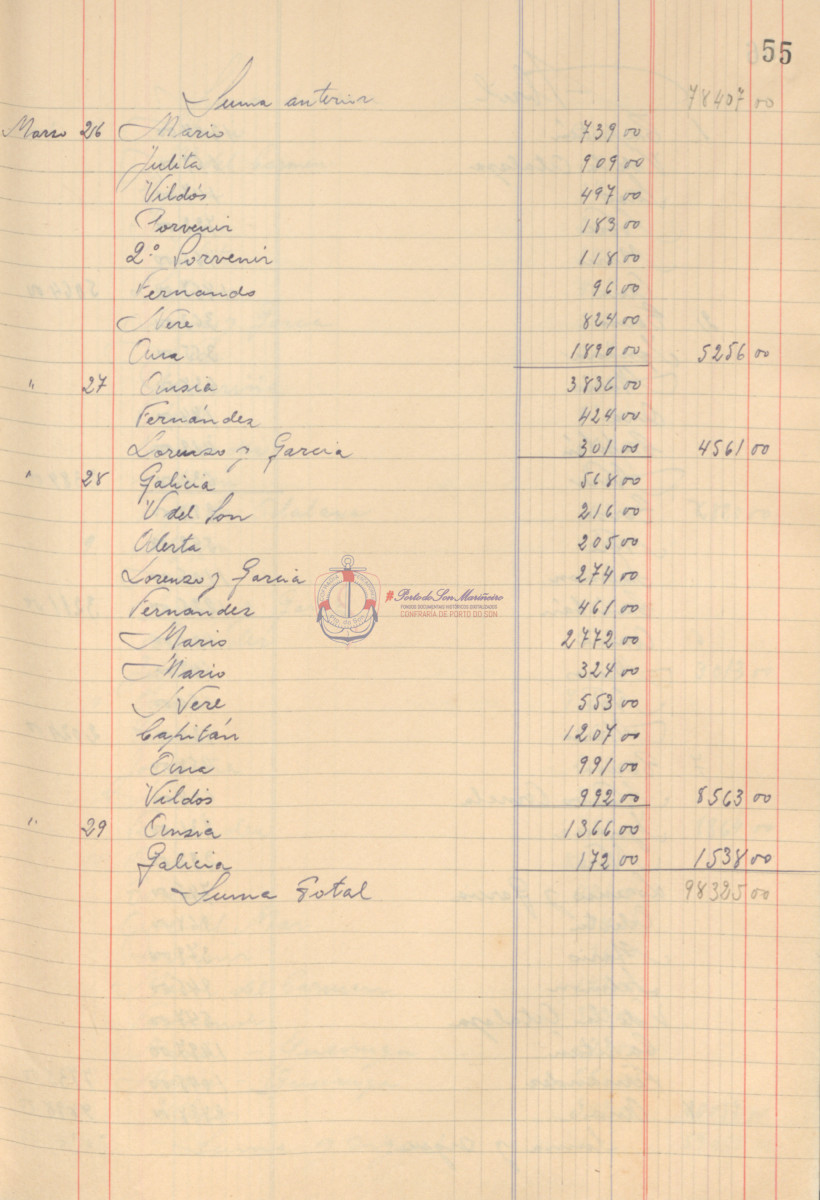 55
Suma anterior 78407 00
Marzo 26 Mario 739 00
Julita 909 00
Vildós 497 00
Porvenir 183 00
2º Porvenir 118 00
Fernando 96 00
Nere 824 00
Ana 1890 00 5256 00
" 27 Ansia 3836 00
Fernández 424 00
Lorenzo y Garcia 301 00 4561 00
" 28 Galicia 568 00
V del Son 216 00
Alerta 205 00
Lorenzo y Garcia 274 00
Fernandez 461 00
Mario 2772 00
Mario 324 00
Nere 553 00
Capitán 1207 00
Ana 991 00
Vildós 992 00 8563 00
" 29 Ansia 1366 00
Galicia 172 00 1538 00
Suma Total 98325 00
#PortodoSon Mariñeiro
FONDOS DOCUMENTAIS HISTÓRICOS DIXITALIZADOS
CONFRARÍA DE PORTO DO SON